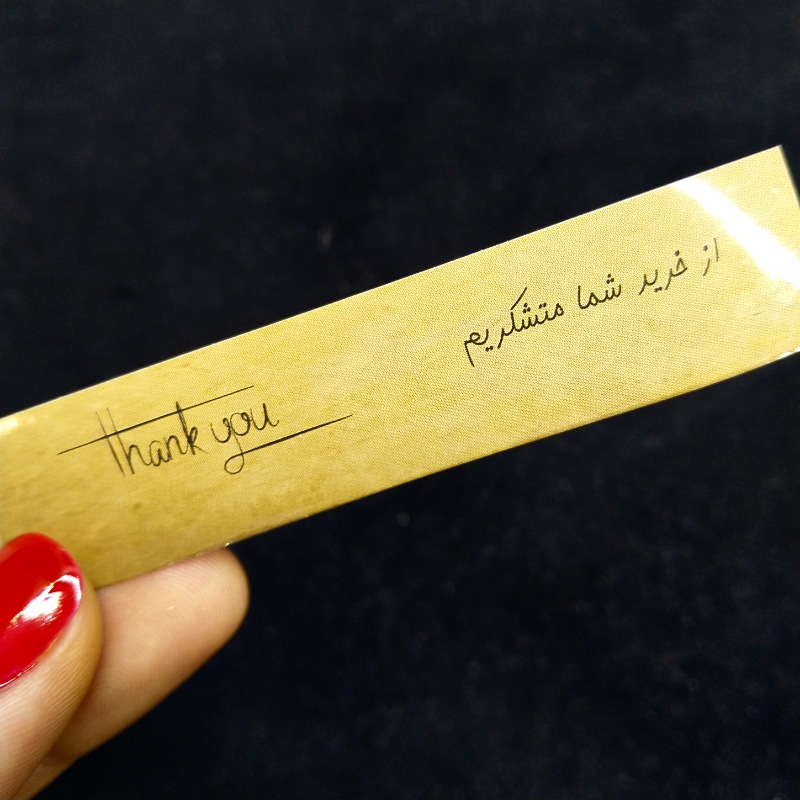 از خرید شما متشکریم
Thank you